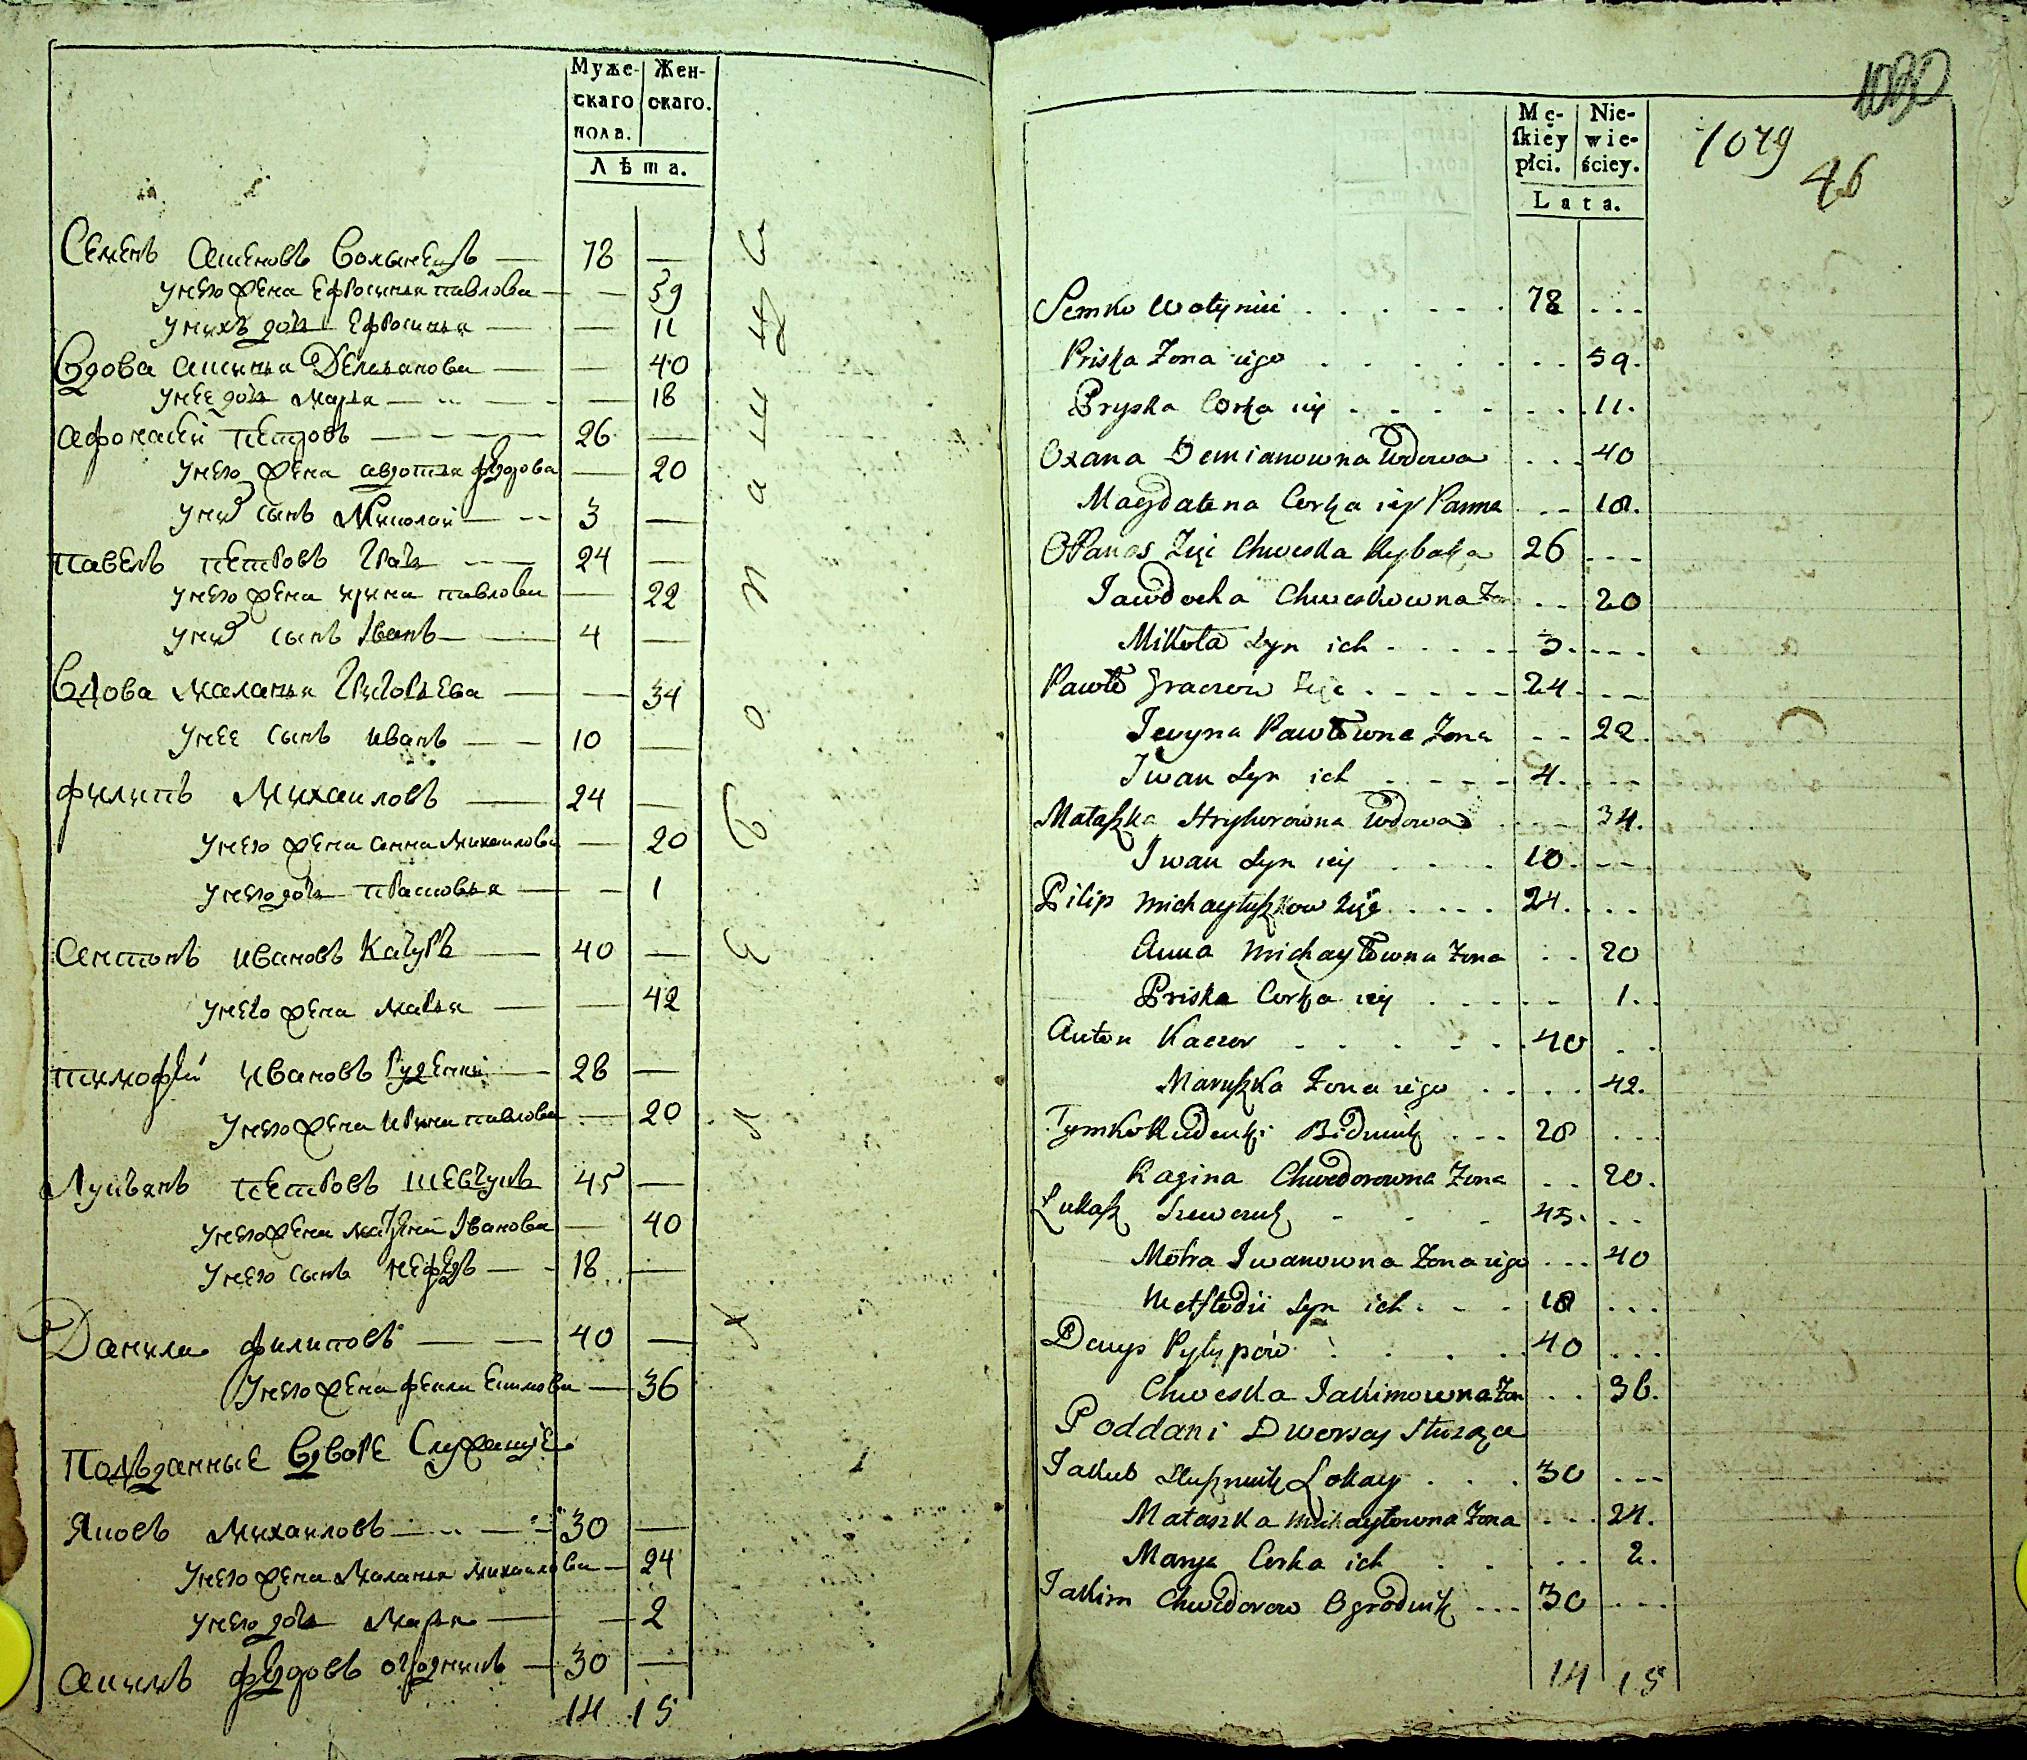 Муже- Жен-
скаго скаго.
пола.
Лѣта.
Семенъ Якимовъ Волынецъ — 78 —
у него жена Ефросинья павлова — — 59
у нихъ дочь Ефросинья — — 11
Вдова Аксинья Демьянова — — 40
у нее дочь Марья — — 18
Афонасей петровъ — 26 —
у него жена авдотья федорова — 20
у них сынъ Николай — 3 —
павелъ петровъ Грач — 24 —
у него жена ирина павлова — 22
у них сынъ Иванъ — 4 —
Вдова маланья Григорьева — — 34
у нее сынъ иванъ — 10 —
филипъ Михаиловъ — 24 —
у него жена анна Михаилова — 20
у него дочь прасковья — — 1
Антонъ ивановъ Качуръ — 40 —
у него жена марья — — 42
тимофѣй ивановъ Руденкй — 28 —
у него жена ирина павлова — 20
Лукьянъ петровъ шевчукъ 45 —
у него жена матрена Иванова — 40
у него сынъ нефедъ — 18 —
Данила филиповъ — 40 —
у него жена фекла Екимова — 36
Подъданные Вдворе Служащие
Яковъ михаиловъ — 30 —
у него жена Маланья михаилова — 24
у него дочь марья — — 2
акимъ федоровъ огродникъ — 30 —
14 15
1030
1079
46
Mę- Nie-
skiey wie-
płci. ściey.
Lata.
Semko Wołyniec . . . . . . 78 . . .
Priska Zona iego . . . . . . . 59.
Pryska Corka iey . . . . . . . 11.
Oxana Demianowna Wdowa . . . 40
Magdalena Corka iey Panna . . 18.
Opanas Zięc Chweska Rybaka 26 . . .
Jawdocha Chweskowna Zo . . 20
Mikoła Syn ich . . . . . 3. . . .
Pawło Graczow Zięc . . . . . 24 . . .
Jeryna Pawłowna Zona . . 22.
Iwan Syn ich . . . . 4. . . .
Małaszka Hryhorowna Wdowa . . . . 34.
Iwan Syn iey . . . . 10. . . .
Pilip Michayłuszkow Zięc . . . . 24. . . .
Anna Michayłowna Zona . . 20
Priska Corka iey . . . . . 1. .
Anton Kaczor . . . . . . 40 . .
Maruszka Zona iego . . . . 42.
Tymko Rudenki Bidnik . . . 28 . . .
Ragina Chwedorowna Zona . . 20.
Łukasz Szewczuk . . . 45. . .
Motra Iwanowna Zona iego . . . 40
Metstodii Syn ich . . . 18 . . .
Denys Pyłypów . . . . . 40 . . .
Chweska Jakimowna Zon . . 36.
Poddani Dworscy Służące
Jakub Słuznik Lokay . . . 30 . . .
Małaszka Michayłowna Zona . . . 24.
Marya Corka ich . . . . . 2.
Jakim Chwedorow Ogrodnik . . . 30 . . .
14 15